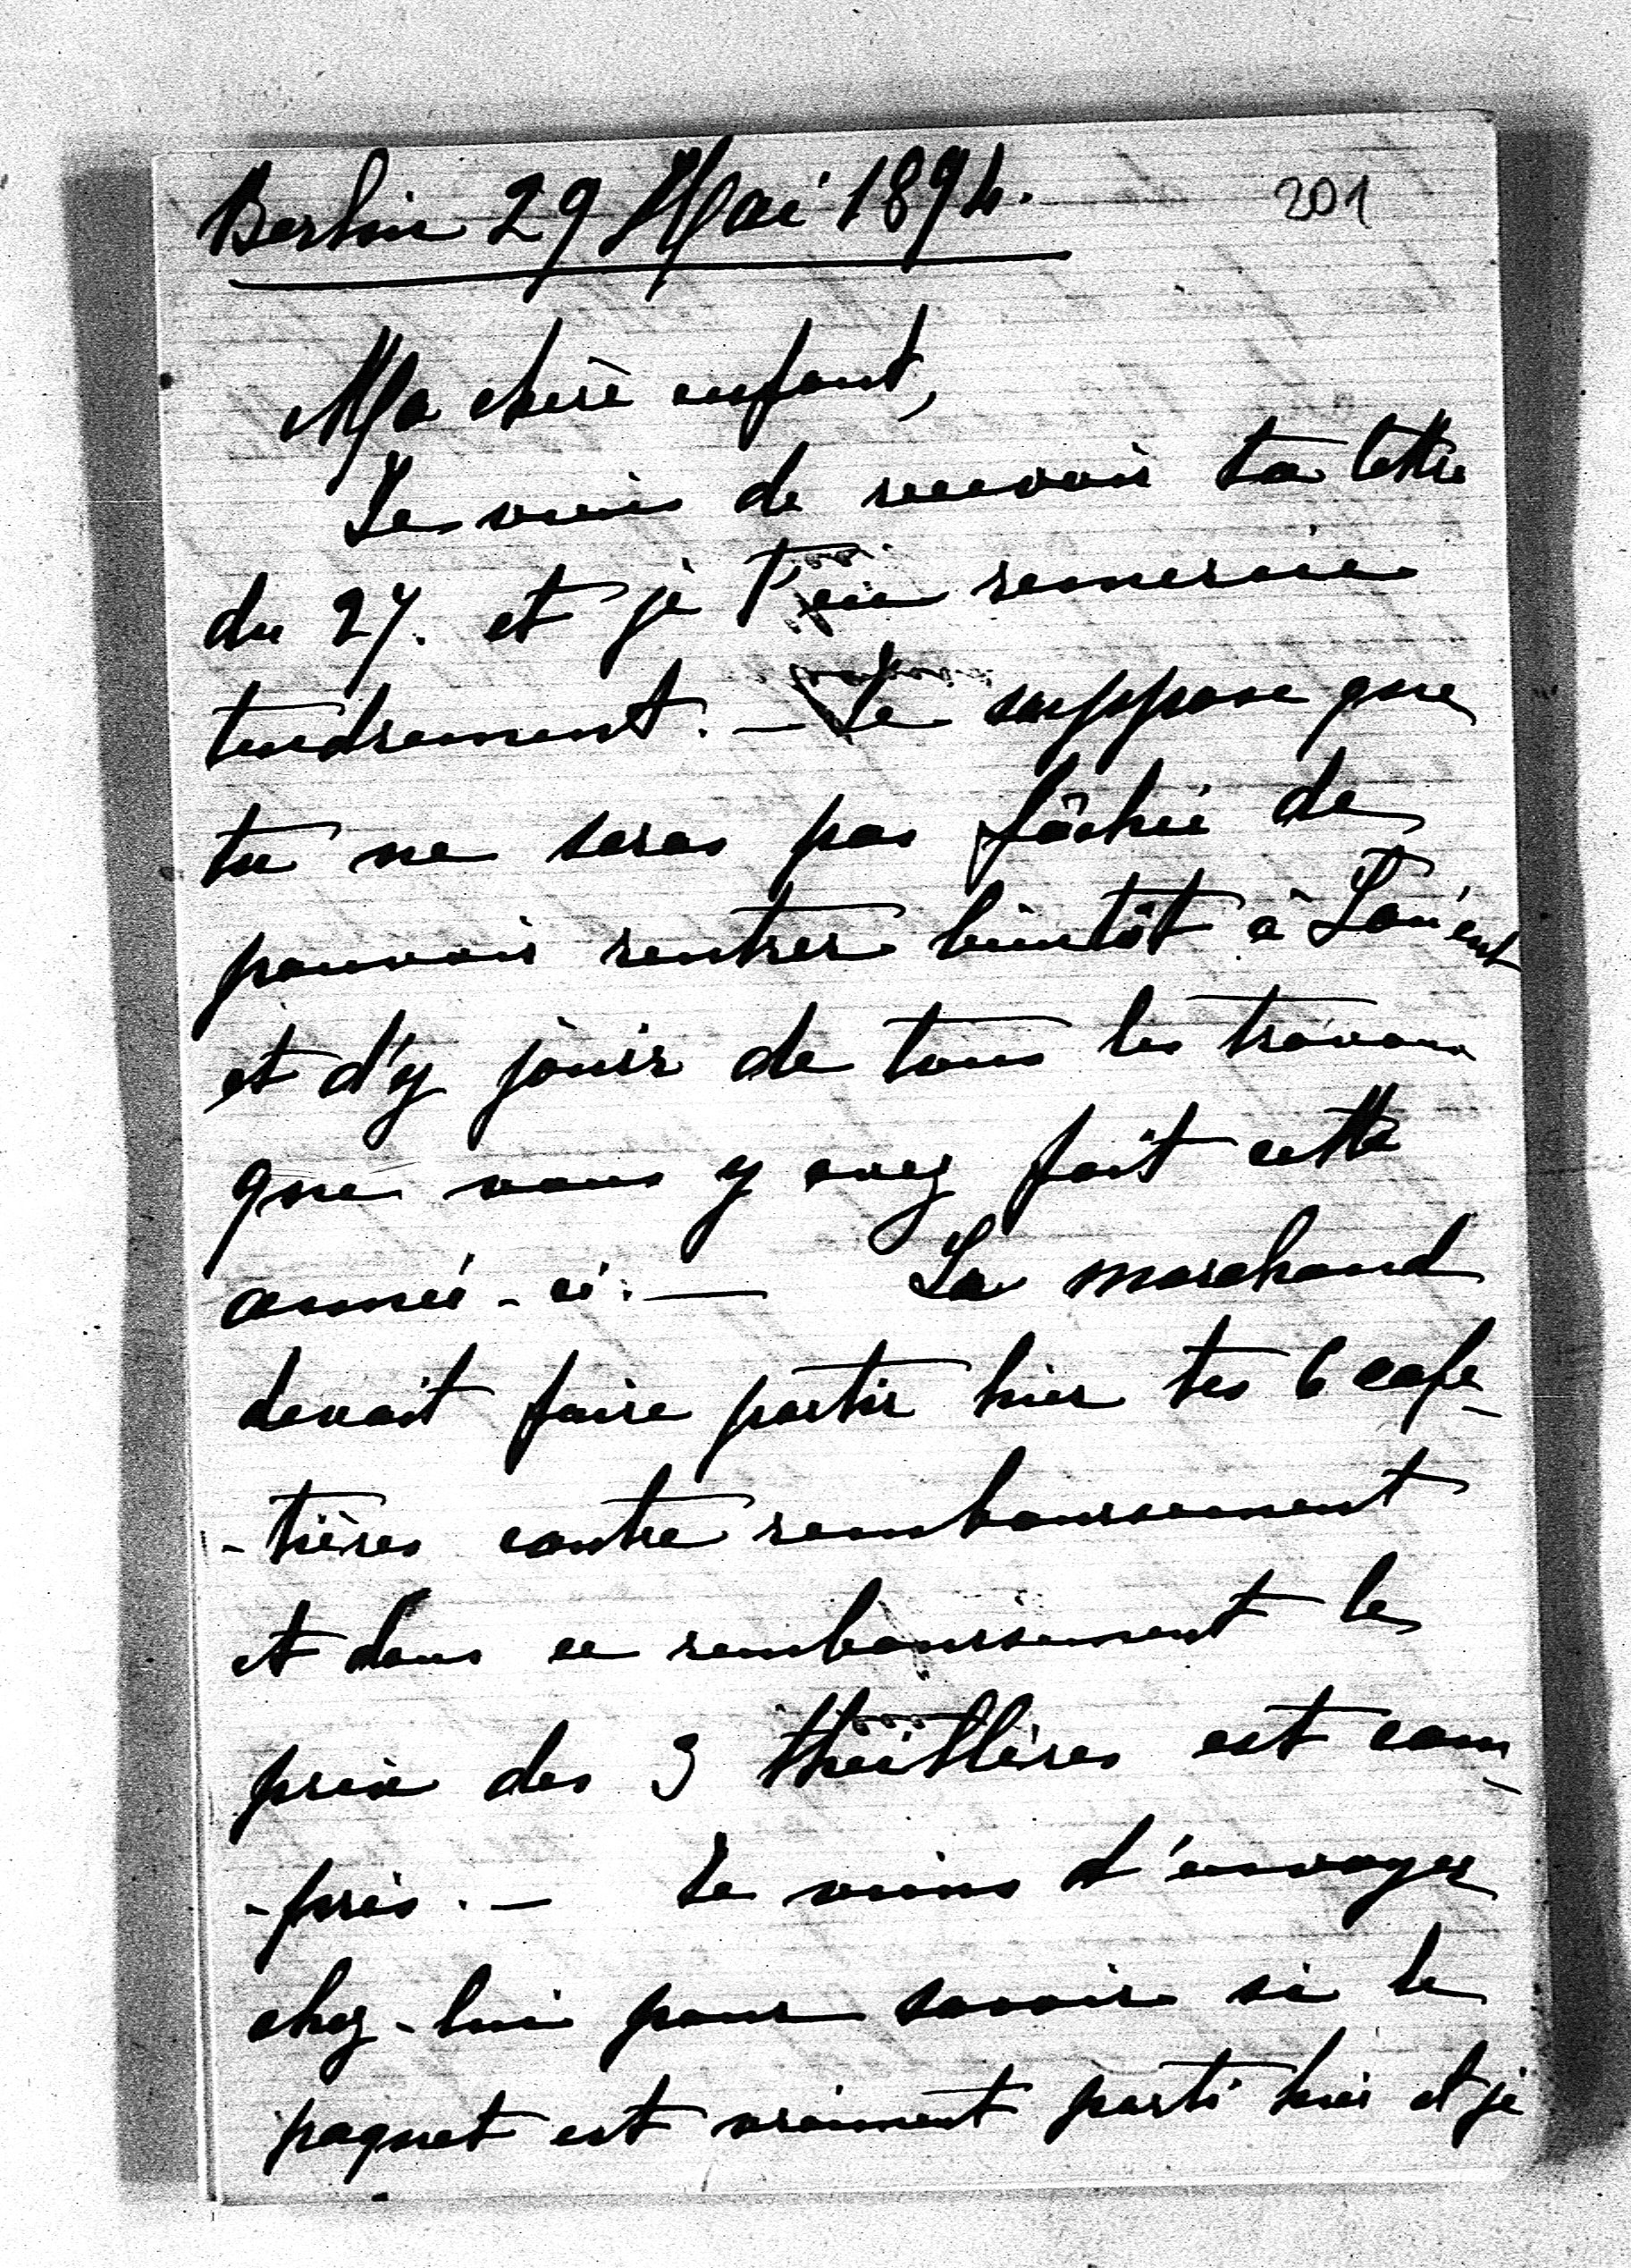 Berlin 29 Mai 1894.
201
Ma chère enfant,
Je viens de recevoir ta lettre
du 27. et je t'en remercie
tendrement. — Je suppose que
tu ne seras pas fâchée de
pouvoir rentrer bientôt à
et d'y jouir de tous les travaux
que vous y avez fait cette
année-ci. — Le marchand
devait faire partir hier tes 6 cafe-
-tières contre remboursement
et dans ce remboursement le
prix des 3 théitières est com-
-pris. — Je viens d'envoyer
chez-lui pour savoir si le
paquet est vraiment parti hier et je